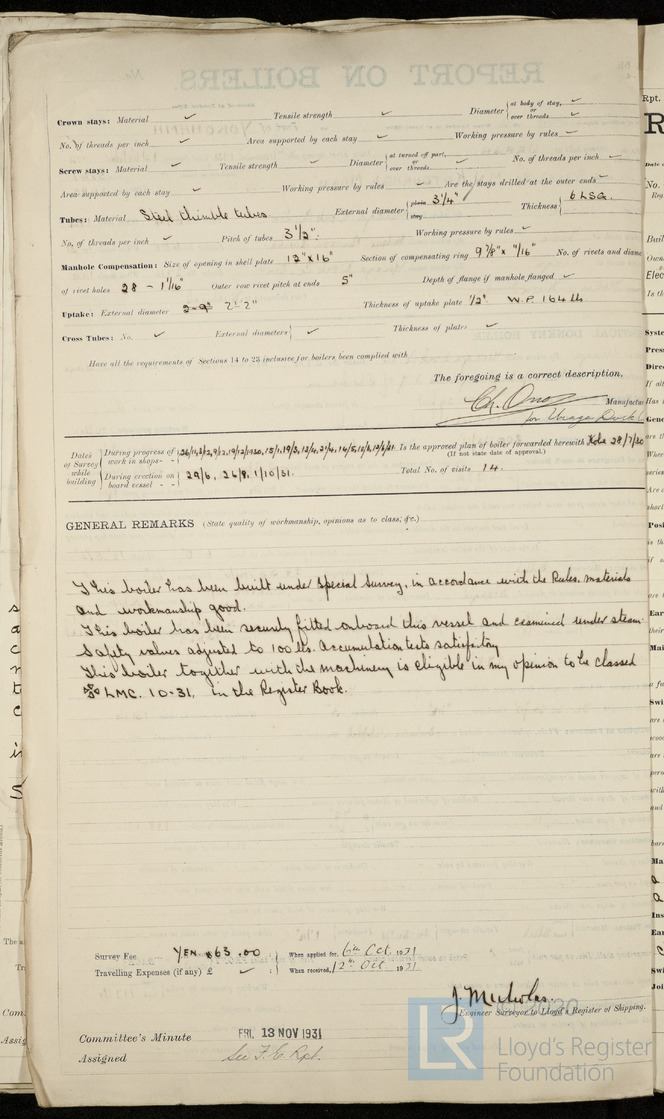 REPORT ON BOILERS.
Crown stays: Material ✓ Tensile strength ✓ Diameter at body of stay, or over threads ✓
No. of threads per inch ✓ Area supported by each stay ✓ Working pressure by rules ✓
Screw stays: Material ✓ Tensile strength ✓ Diameter at turned off part, or over threads ✓ No. of threads per inch ✓
Area supported by each stay ✓ Working pressure by rules ✓ Are the stays drilled at the outer ends ✓
Tubes: Material Steel thimble tubes External diameter plain 3 1/4" stay Thickness 6 LSG.
No. of threads per inch ✓ Pitch of tubes 3 1/2" Working pressure by rules ✓
Manhole Compensation: Size of opening in shell plate 12" x 16" Section of compensating ring 9 7/8" x 11/16" No. of rivets and diame
of rivet holes 28 - 1 1/16" Outer row rivet pitch at ends 5" Depth of flange if manhole flanged ✓
Uptake: External diameter 2'-2" Thickness of uptake plate 1/2" W.P. 164 lb
Cross Tubes: No. ✓ External diameters ✓ Thickness of plates ✓
Have all the requirements of Sections 14 to 23 inclusive for boilers been complied with
The foregoing is a correct description,
Manufactu
for Uraga Dock
Dates of Survey while building
During progress of work in shops - - Is the approved plan of boiler forwarded herewith Kobe 28/7/30
(If not state date of approval.)
During erection on board vessel - - 29/6, 26/8, 1/10/31. Total No. of visits 14.
GENERAL REMARKS (State quality of workmanship, opinions as to class, &c.)
This boiler has been built under Special Survey, in accordance with the Rules. materials
and workmanship good.
This boiler has been securely fitted onboard this vessel and examined under steam
Safety valves adjusted to 100 lbs. Accumulation tests satisfactory
This boiler together with the machinery is eligible in my opinion to be classed
LMC. 10-31, in the Register Book.
Survey Fee YEN 63.00 When applied for, 6th Oct. 1931
Travelling Expenses (if any) £ ✓ When received, 12th Oct 1931
J. Nicholas.
Engineer Surveyor to Lloyd's Register of Shipping.
Committee's Minute FRI. 13 NOV 1931
Assigned See F.E. Rpt.
© 2020
LR
Lloyd's Register
Foundation